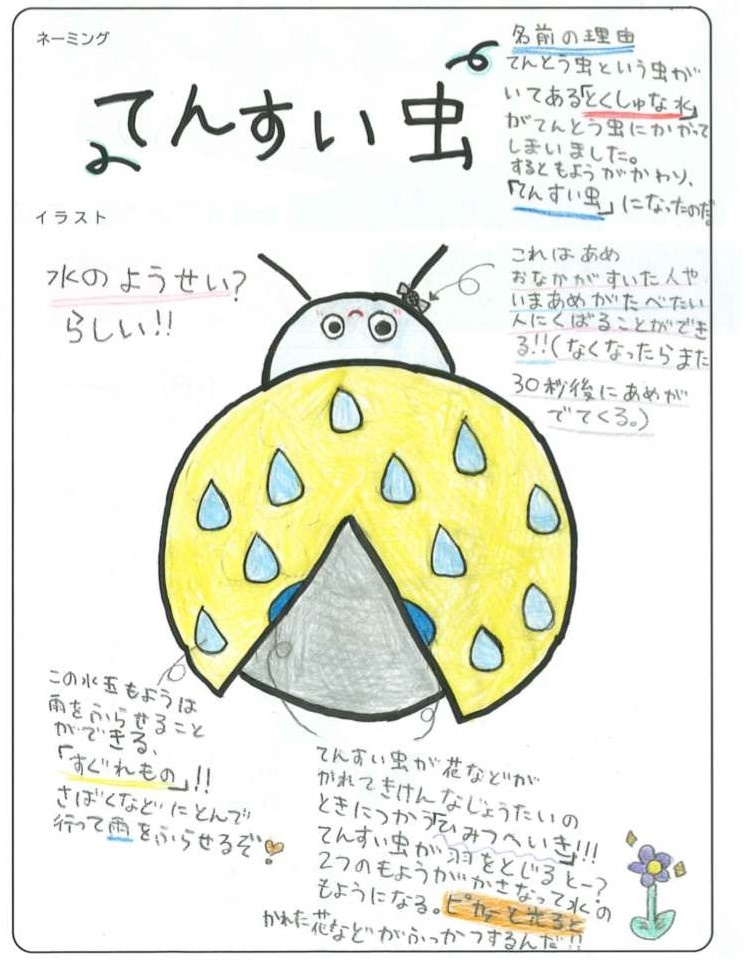 ネーミング
てんすい虫
名前の理由
てんとう虫という虫が
いてある「とくしゅな水」
がてんとう虫にかかって
しまいました。
するともようがかわり、
「てんすい虫」になったのだ
イラスト
水のようせい?
らしい!!
これはあめ
おなかがすいた人や
いまあめがたべたい
人にくばることができ
る!!(なくなったらまた
30秒後にあめが
でてくる。)
この水玉もようは
雨をふらせること
ができる、
「すぐれもの」!!
さばくなどにとんで
行って雨をふらせるぞ!
てんすい虫が花などが
かれてきけんなじょうたいの
ときにつかう「ひみつへいき」!!!
てんすい虫が羽をとじるとー?
2つのもようがかさなって水の
もようになる。ピカーと光ると
かれた花などがふっかつするんだ!!